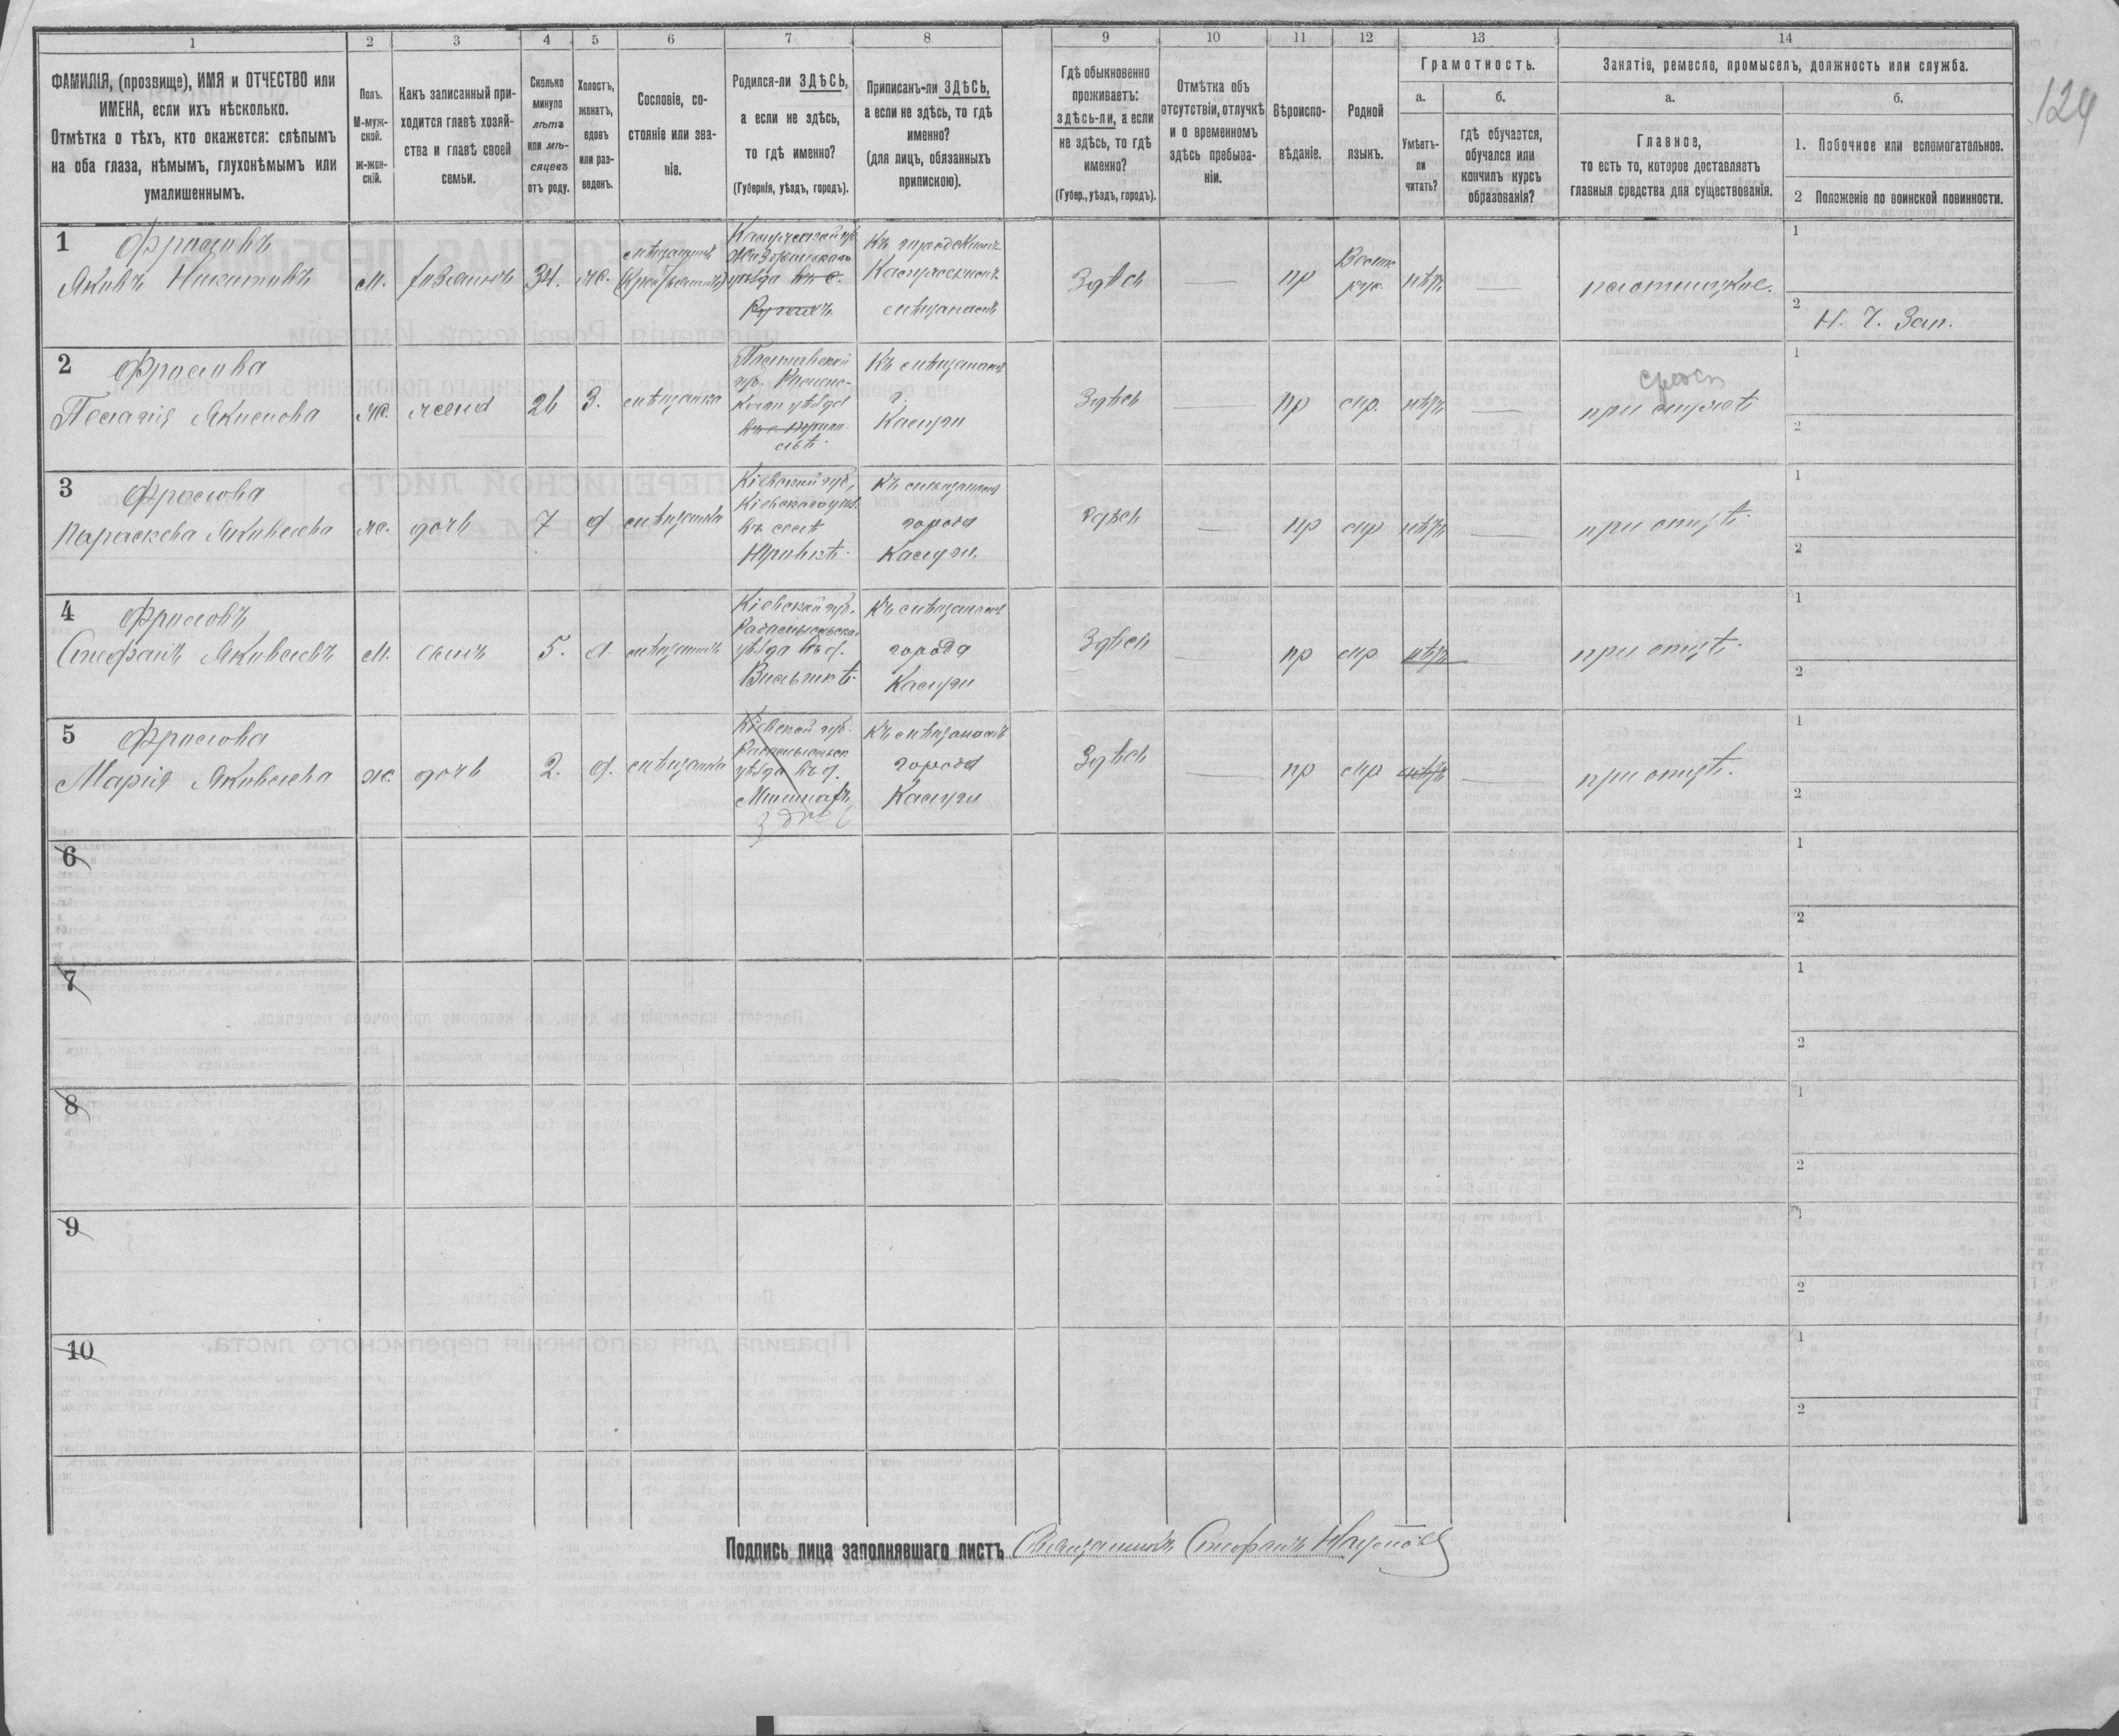 1 2 3 4 5 6 7 8 9 10 11 12 13 14
124
ФАМИЛІЯ, (прозвище), ИМЯ и ОТЧЕСТВО или
ИМЕНА, если ихъ нѣсколько.
Отмѣтка о тѣхъ, кто окажется: слѣпымъ
на оба глаза, нѣмымъ, глухонѣмымъ или
умалишеннымъ.
Полъ.
М-муж-
ской.
ж-жен-
скій.
Какъ записанный при-
ходится главѣ хозяй-
ства и главѣ своей
семьи.
Сколько
минуло
лѣтъ
или мѣ-
сяцевъ
отъ роду.
Холостъ,
женатъ,
вдовъ
или раз-
веденъ.
Сословіе, со-
стояніе или зва-
ніе.
Родился-ли ЗДѢСЬ,
а если не здѣсь,
то гдѣ именно?
(Губернія, уѣздъ, городъ).
Приписанъ-ли ЗДѢСЬ,
а если не здѣсь, то гдѣ
именно?
(для лицъ, обязанныхъ
припискою).
Гдѣ обыкновенно
проживаетъ:
здѣсь-ли, а если
не здѣсь, то гдѣ
именно?
(Губер., уѣздъ, городъ).
Отмѣтка объ
отсутствіи, отлучкѣ
и о временномъ
здѣсь пребыва-
ніи.
Вѣроиспо-
вѣданіе.
Родной
языкъ.
Грамотность.
а.
Умѣетъ-
ли
читать?
б.
гдѣ обучается,
обучался или
кончилъ курсъ
образованія?
Занятіе, ремесло, промыселъ, должность или служба.
а.
Главное,
то есть то, которое доставляетъ
главныя средства для существованія.
б.
1. Побочное или вспомогательное.
2 Положеніе по воинской повинности.
1
Фроловъ
Яковъ Никитовъ
м.
хозяинъ
34.
ж.
мѣщанинъ
Калужской губ.
уѣзда въ с.
Къ городскимъ
Калужскимъ
мѣщанамъ
Здѣсь
пр
рус.
нѣтъ
плотницкое.
1
2
Н. Ч. Зап.
2
Фролова
Пелагія Акимова
ж.
жена
26
З.
мѣщанка
Полтавской
губ.
уѣзда
Къ мѣщанамъ
г.
Калуги
Здѣсь
пр
мр.
нѣтъ
при мужѣ
1
2
3
Фролова
Параскева Яковлева
ж.
дочь
7
д
мѣщанка
Кіевской губ,
Кіевскаго уѣз.
въ селѣ
Юровкѣ.
Къ мѣщанам
города
Калуги
здѣсь
пр
мр
нѣтъ
при отцѣ.
1
2
4
Фроловъ
Стефанъ Яковлевъ
м.
сынъ
5.
х.
мѣщанинъ
Кіевской губ.
Радомысльска
уѣзда въ д.
Къ мѣщанам
города
Калуги
Здѣсь
пр
мр
нѣтъ
при отцѣ.
1
2
5
Фролова
Марія Яковлева
ж.
дочь
2.
д.
мѣщанка
Кіевской губ.
Радомысльск
уѣзда въ д.
здѣсь
Къ мѣщанамъ
города
Калуги
Здѣсь
пр
мр
нѣтъ
при отцѣ.
1
2
6
1
2
7
1
2
8
1
2
9
1
2
10
1
2
Подпись лица заполнявшаго листъ Мѣщанинъ Стефанъ